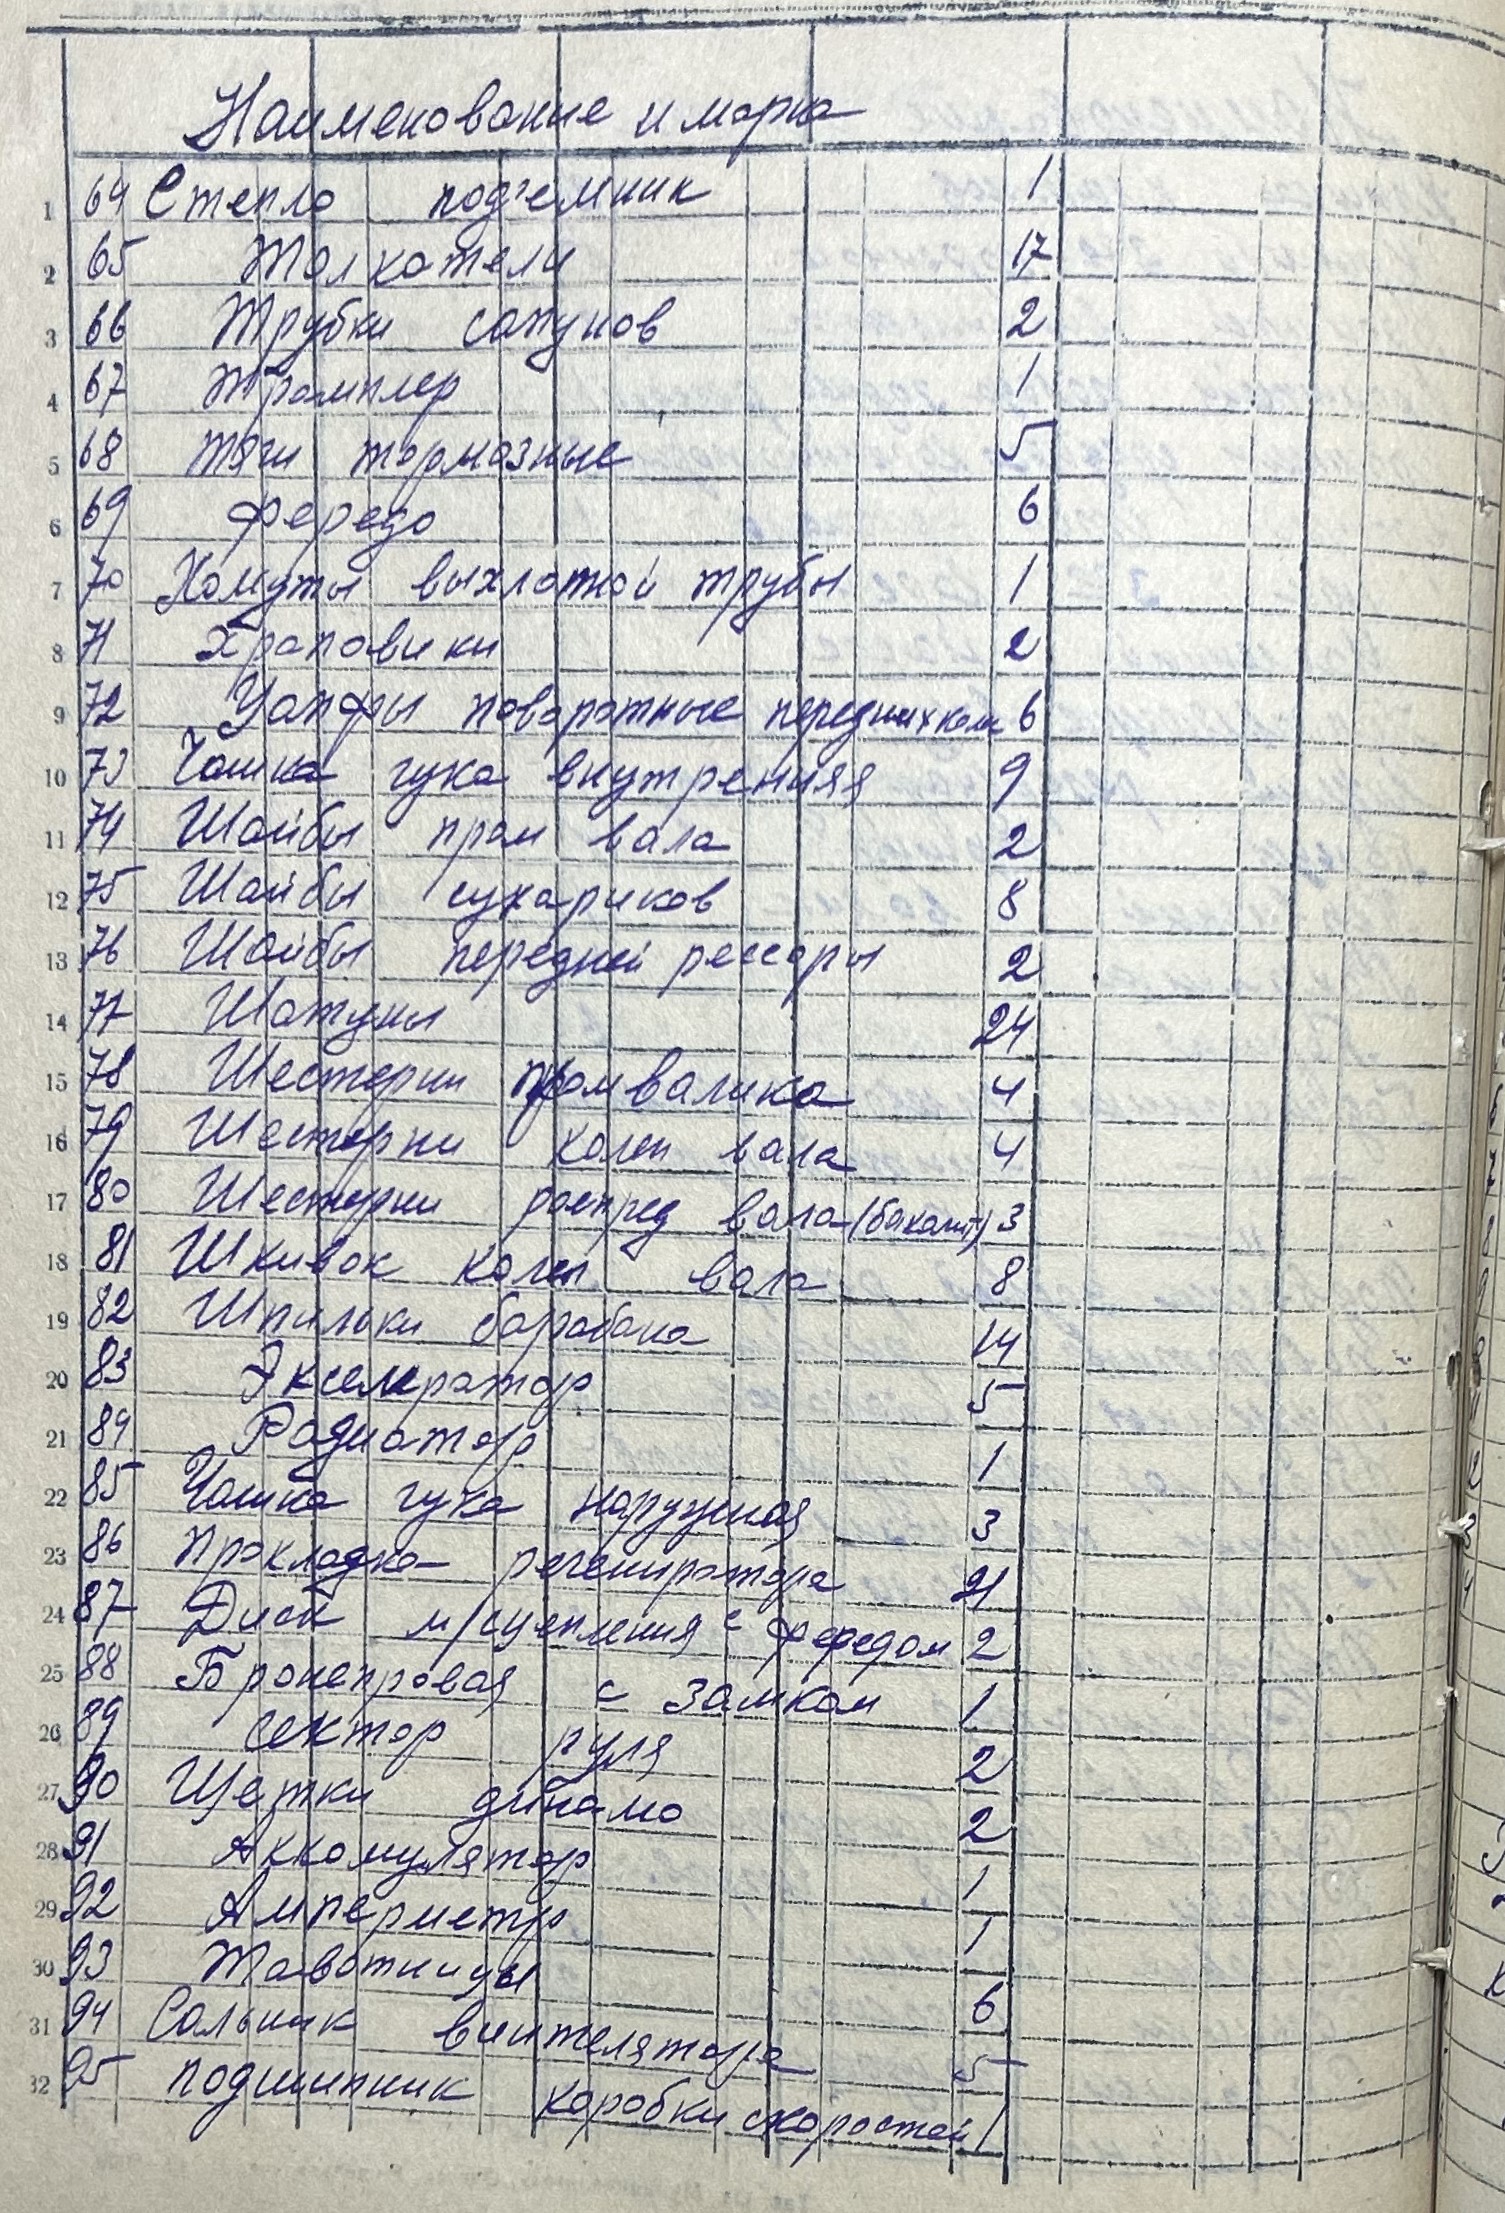 Наименование и марка
1 64 Стекло под'емник 1
2 65 Толкатели 17
3 66 Трубки сапунов 2
4 67 Трамплер 1
5 68 Тяги тормозные 5
6 69 Фередо 6
7 70 Хомуты выхлопной трубы 1
8 71 Храповики 2
9 72 Цапфы поворотные передних кол 6
10 73 Чашка гука внутренняя 9
11 74 Шайбы пром вала 2
12 75 Шайбы сухариков 8
13 76 Шайбы передней рессоры 2
14 77 Шатуны 24
15 78 Шестерни пром валика 4
16 79 Шестерни колен вала 4
17 80 Шестерни распред вала (бакалит) 3
18 81 Шкивок колен вала 8
19 82 Шпильки барабана 14
20 83 Экселератор 5
21 84 Радиатор 1
22 85 Чашка гука наружная 3
23 86 Прокладка регениратора 21
24 87 Диск м/сцепления с фередом 2
25 88 Бронепровая с замком 1
26 89 Сектор руля 2
27 90 Щетки динамо 2
28 91 Аккомулятор 1
29 92 Амперметр 1
30 93 Тавотницы 6
31 94 Сальник вентелятора 5
32 95 подшипник коробки скоростей 1